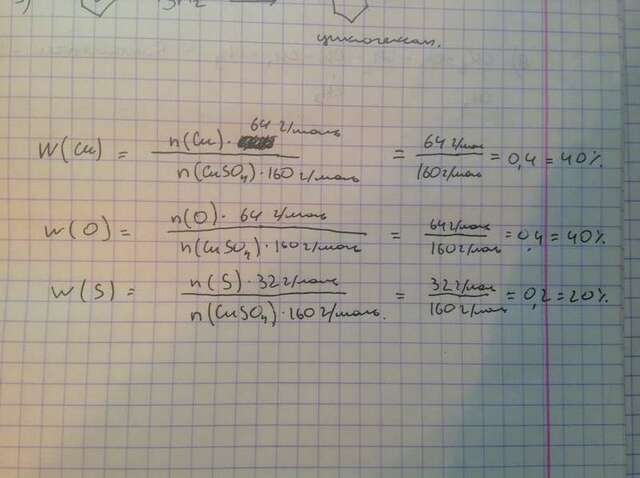 3H₂
циклогексан.
W(Cu) = n(Cu) · 64 г/моль / n(CuSO₄) · 160 г/моль = 64 г/моль / 160 г/моль = 0,4 = 40%.
W(O) = n(O) · 64 г/моль / n(CuSO₄) · 160 г/моль = 64 г/моль / 160 г/моль = 0,4 = 40%.
W(S) = n(S) · 32 г/моль / n(CuSO₄) · 160 г/моль. = 32 г/моль / 160 г/моль = 0,2 = 20%.